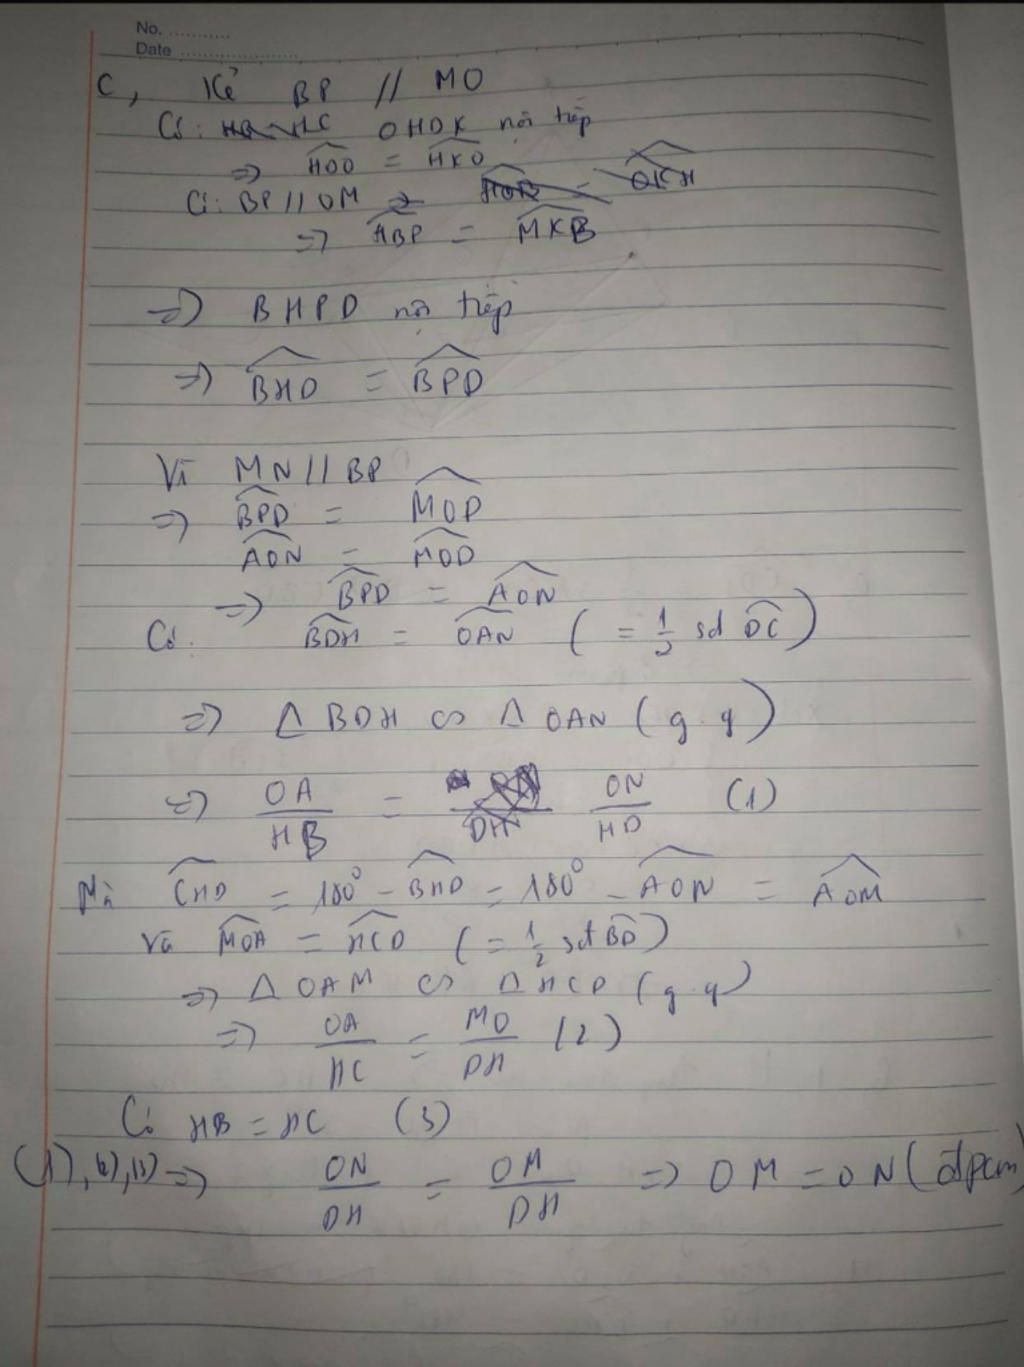 No. ............
Date .....................
C, Kẻ BP // MO
Có: OHDK nội tiếp
=> HOD = HKD
Có: BP // OM =>
=> HBP = MKB
=> BHPD nội tiếp
=> BHD = BPD
Vì MN // BP
=> BPD = MOD
AON = MOD
=> BPD = AON
Có: BDH = OAN ( = 1/2 sđ DC )
=> Δ BDH ∽ Δ OAN ( g.g )
=> OA/HB = ON/HD (1)
Mà CHD = 180° - BHD = 180° - AON = AOM
Và MOA = HCD ( = 1/2 sđ BD )
=> Δ OAM ∽ Δ HCD ( g.g )
=> OA/HC = MO/DH (2)
Có HB = HC (3)
(1), (2), (3) => ON/DH = OM/DH => OM = ON (đpcm)